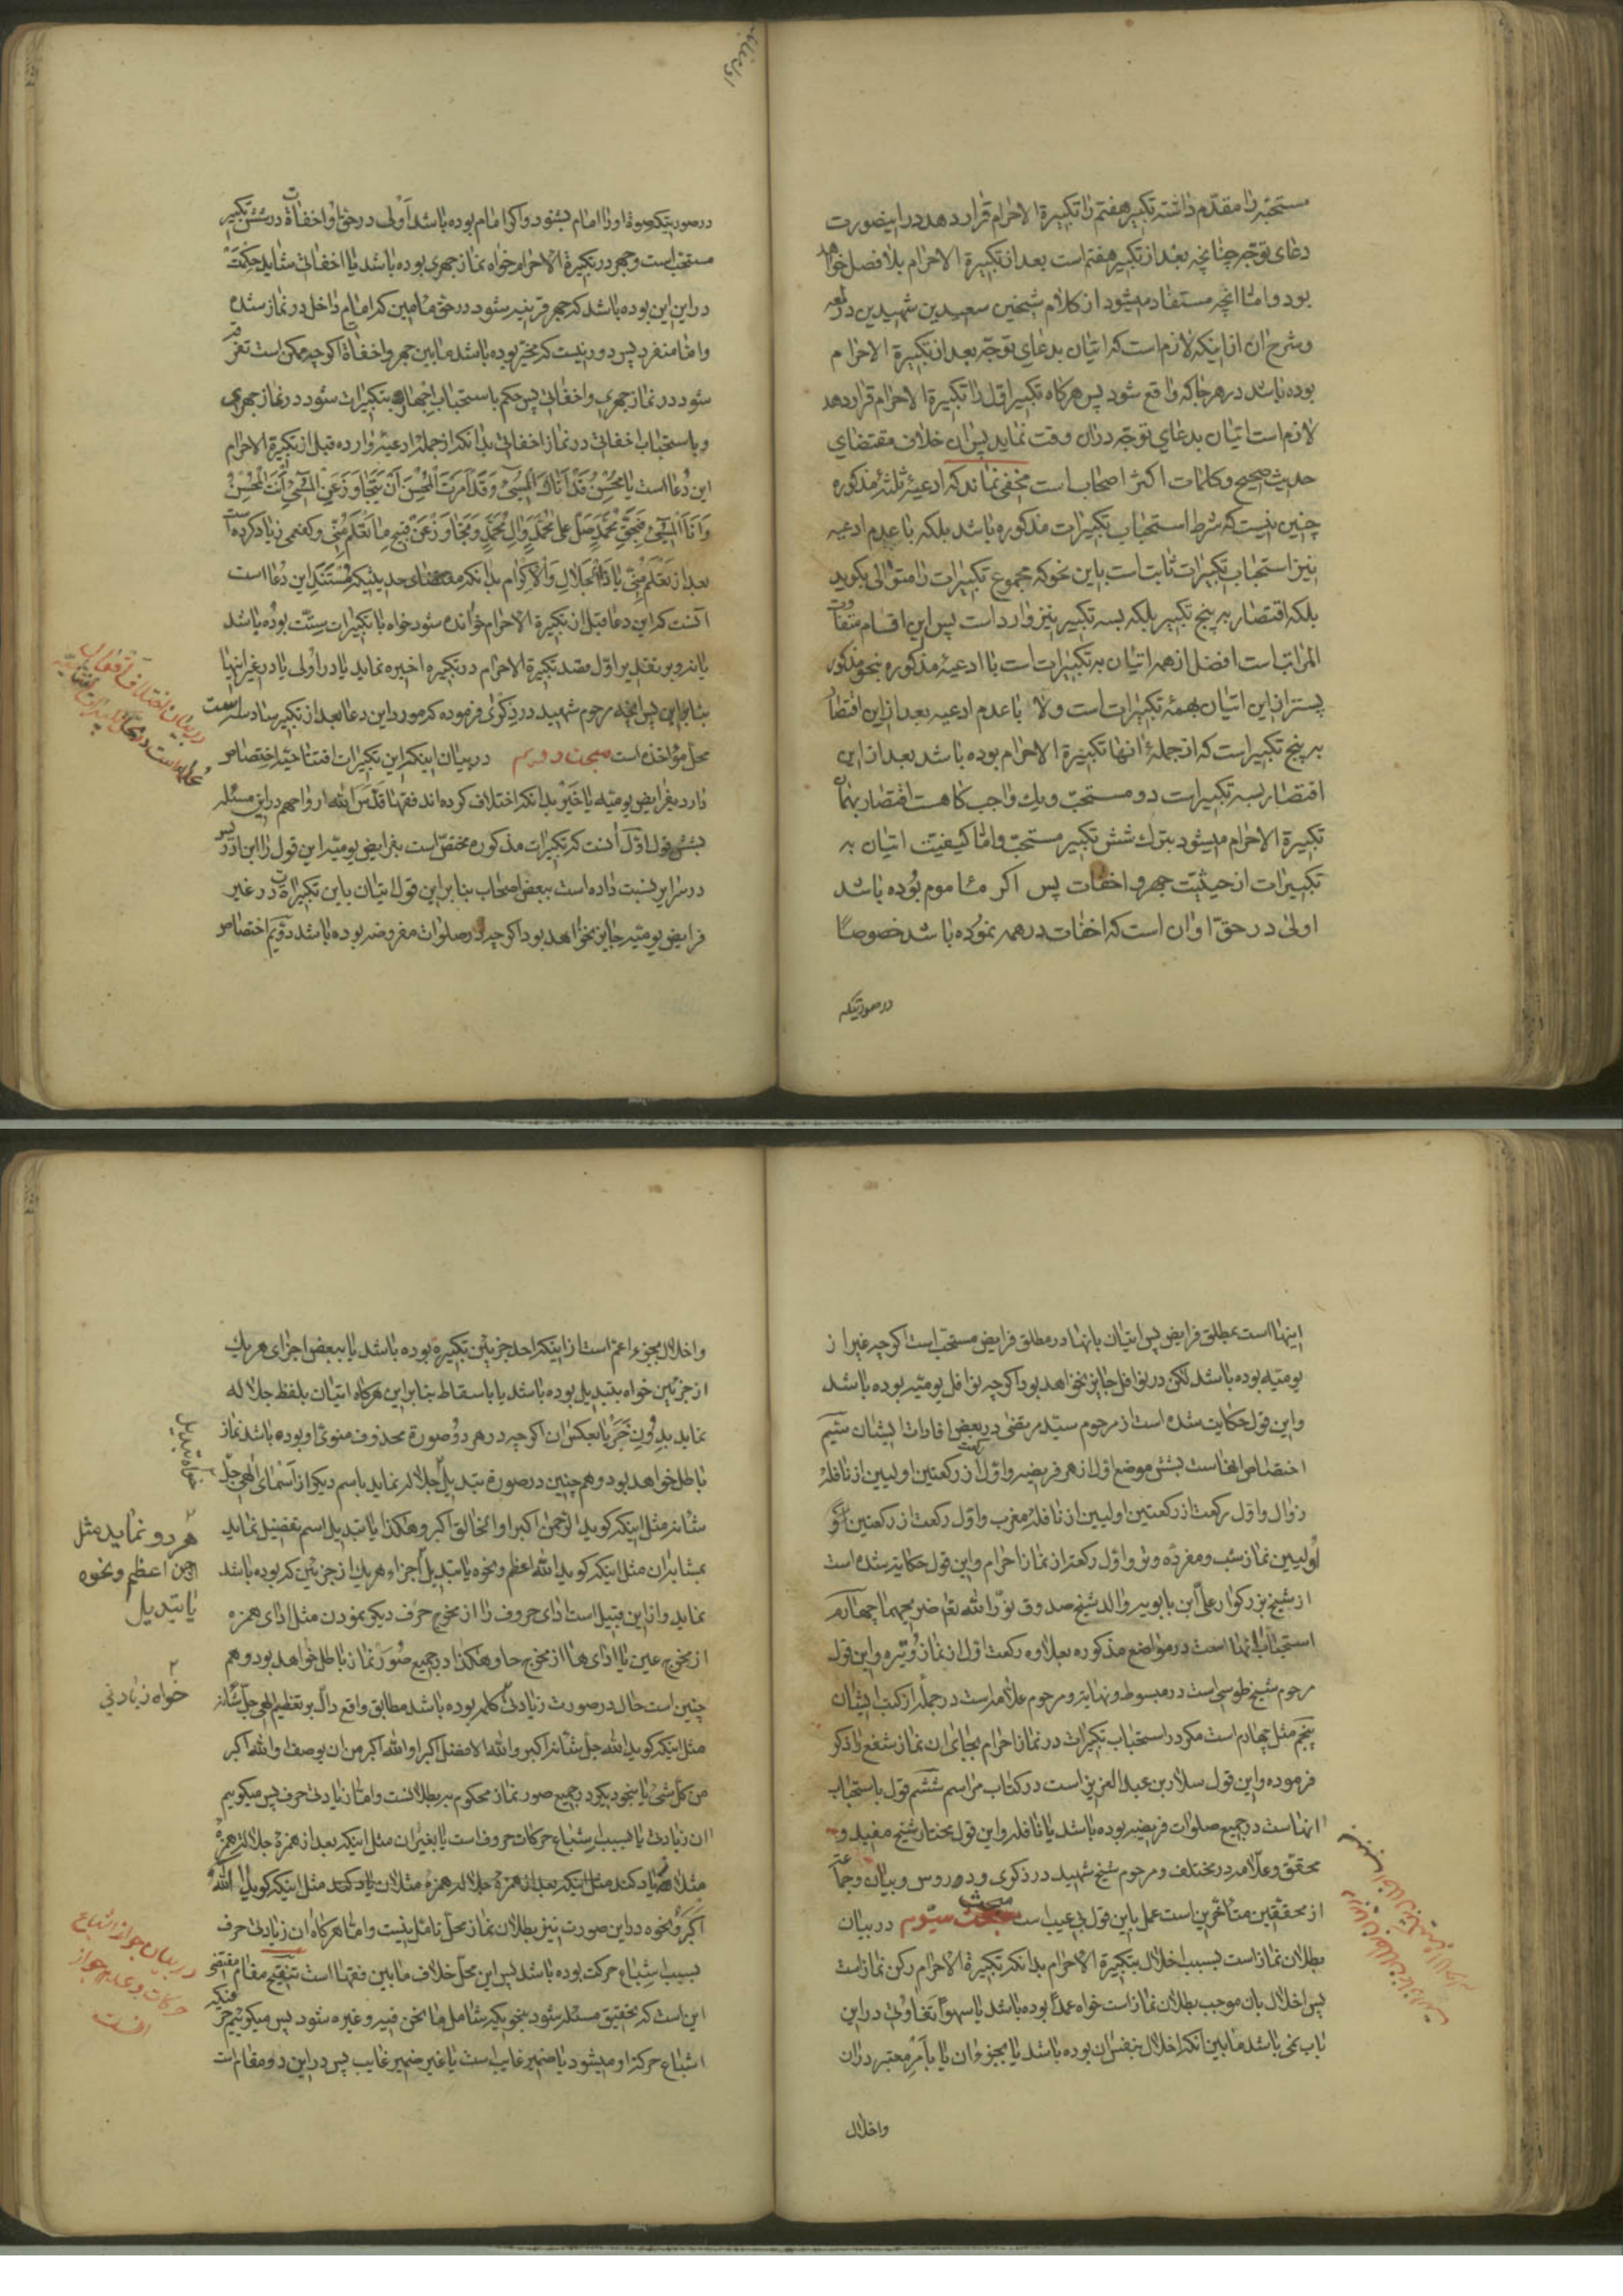 مستحبّه را مقدّم داشته تکبیر هفتم را تکبیرة الاحرام قرار دهد در اینصورت
دعای توجّه چنانچه بعد از تکبیر هفتم است بعد از تکبیرة الاحرام بلا فصل خواهد
بود و امّا انچه مستفاد میشود از کلام شیخین سعیدین شهیدین در لمعه
و شرح ان از اینکه لازم است که اتیان بدعای توجّه بعد از تکبیرة الاحرام
بوده باشد در هر جا که واقع شود پس هر کاه تکبیر اوّل را تکبیرة الاحرام قرار دهد
لازم است اتیان بدعای توجّه دران وقت نماید پس ان خلاف مقتضای
حدیث صحیح و کلمات اکثر اصحاب است مخفی نماند که ادعیهٔ ثلثهٔ مذکوره
چنین نیست که شرط استحباب تکبیرات مذکوره باشد بلکه با عدم ادعیه
نیز استحباب تکبیرات ثابت است باین نحو که مجموع تکبیرات را متوالی بکوید
بلکه اقتصار به پنج تکبیر بلکه بسه تکبیر نیز وارد است پس این اقسام متفاوت
المراتب است افضل از همه اتیان به تکبیرات است با ادعیهٔ مذکوره بنحو مذکور
پس از این اتیان بهمهٔ تکبیرات است و لا با عدم ادعیه بعد از این اقتصار
به پنج تکبیر است که از جملهٔ انها تکبیرة الاحرام بوده باشد بعد از این
اقتصار بسه تکبیر است دو مستحبّ و یک واجب کاهست اقتصار بهمان
تکبیرة الاحرام میشود بترک شش تکبیر مستحبّ و امّا کیفیّت اتیان به
تکبیرات از حیثیّت جهر و اخفات پس اکر مأموم بوده باشد
اولی در حقّ او ان است که اخفات در همه نموده باشد خصوصًا
در صورتیکه
در صورتیکه صوت او را امام بشنود و اکر امام بوده باشد اولی در حقّ او اخفات در شش تکبیر
مستحبّ است و جهر در تکبیرة الاحرام خواه نماز جهری بوده باشد یا اخفاتی شاید حکمت
در این این بوده باشد که جهر قرینه شود در حقّ مأمین که امام داخل در نماز شده
و امّا منفرد پس دور نیست که مخیّر بوده باشد ما بین جهر و اخفات اکر چه ممکن است تفرقه
شود در نماز جهری و اخفاتی پس حکم باستحباب اجهار به تکبیرات شود در نماز جهری
و باستحباب اخفاتی در نماز اخفاتی بدانکه از جملهٔ ادعیهٔ وارده قبل از تکبیرة الاحرام
این دُعا است یا مُحْسِنُ قَدْ أتاکَ الْمُسِیءُ وَقَدْ أمَرْتَ الْمُحْسِنَ أنْ یَتَجاوَزَ عَنِ الْمُسِیءِ أنْتَ الْمُحْسِنُ
وَ أنَا الْمُسِیءُ فَبِحَقِّ مُحَمَّدٍ صَلِّ عَلی مُحَمَّدٍ وَآلِ مُحَمَّدٍ وَ تَجاوَزْ عَنْ قَبِیحِ ما تَعْلَمُ مِنّی و کفعمی زیاد کرده است
بعد از تَعْلَمُ مِنّی یا ذَا الْجَلالِ وَ الْاِکْرام بدانکه مقتضای حدیثیکه مُستند این دُعا است
انست که این دعا قبل از تکبیرة الاحرام خوانده شود خواه با تکبیرات ستّ بوده باشد
یا نه و بر تقدیر اوّل قصد تکبیرة الاحرام در تکبیرهٔ اخیره نماید یا در اُولی یا در غیر اینها
بنابر این پس انچه مرحوم شهید در ذکری فرموده که مورد این دعا بعد از تکبیر سادسه است
محلّ مؤاخذه است مبحث دویم در بیان اینکه این تکبیرات افتتاحیّه اختصاص
دارد بفرایض یومیّه یا خیر بدانکه اختلاف کرده اند فقها قدّس الله ارواحهم در این مسئله
بشش قول اوّل انست که تکبیرات مذکوره مختصّ است بفرایض یومیّه این قول را ابن ادریس
در سرایر نسبت داده است ببعض اصحاب بنابر این قول اتیان باین تکبیرات در غیر
فرایض یومیّه جایز نخواهد بود اکر چه از صلوات مفروضه بوده باشد دویّم اختصاص
اینها است بمطلق فرایض پس اتیان بانها در مطلق فرایض مستحبّ است اکر چه غیر از
یومیّه بوده باشد لکن در نوافل جایز نخواهد بود اکر چه نوافل یومیّه بوده باشد
و این قول حکایت شده است از مرحوم سیّد مرتضی در بعض افادات ایشان سیّم
اختصاص انها است بشش موضع اوّل از هر فریضه و اوّل رکعت از رکعتین اولیین از نافلهٔ
زوال و اوّل رکعت از رکعتین اولیین از نافلهٔ مغرب و اوّل رکعت از رکعتین
اولیین نماز شب و مفردهٔ وتر و اوّل رکعت از نماز احرام و این قول حکایت شده است
از شیخ بزرکوار علیّ ابن بابویه والد شیخ صدوق نوّر الله تعالی ضریحهما چهارم
استحباب انها است در مواضع مذکوره بعلاوه رکعت اوّل از نماز وُتیره و این قول
مرحوم شیخ طوسی است در مبسوط و نهایة و مرحوم علّامه است در جملهٔ از کتب ایشان
پنجم مثل چهارم است مکر در استحباب تکبیرات در نماز احرام بجای ان نماز شفع را ذکر
فرموده و این قول سلّار بن عبد العزیز است در کتاب مراسم ششم قول باستحباب
انها است در جمیع صلوات فریضه بوده باشد یا نافله و این قول مختار شیخ مفید و
محقّق و علّامه در مختلف و مرحوم شیخ شهید در ذکری و دروس و بیان و جماعتی
از محقّقین متأخّرین است عمل باین قول بی عیب است مبحث سیّوم در بیان
بطلان نماز است بسبب اخلال بتکبیرة الاحرام بدانکه تکبیرة الاحرام رکن نماز است
پس اخلال بان موجب بطلان نماز است خواه عمدًا بوده باشد یا سهوًا تفاوتی در این
باب نمی باشد ما بین انکه اخلال بنفس ان بوده باشد یا بجزو ان یا بامر معتبر دران
واخلال
و اخلال بجزو اعمّ است از اینکه احد جزئین تکبیره بوده باشد یا ببعض اجزای هر یک
از جزئین خواه بتبدیل بوده باشد یا باسقاط بنابر این هر کاه اتیان بلفظ جلاله
نماید بدون خبر یا بعکس ان اکر چه در هر دو صورة محذوف منوی او بوده باشد نماز
باطل خواهد بود و هم چنین در صورة تبدیل جلاله نماید باسم دیکر از اسمای الهی جلّ
شأنه مثل اینکه کوید الرّحمن اکبر او الخالق اکبر و هکذا یا تبدیل اسم تفضیل نماید
بمشابه ان مثل اینکه کوید الله اعظم و نحوه یا تبدیل اجزاء هر یک از جزئین که بوده باشد
نماید و از این قبیل است ادای حروف را از مخرج حرف دیکر نمودن مثل ادای همزه
از مخرج عین یا ادای ها از مخرج حا و هکذا در جمیع صُوَر نماز باطل خواهد بود و هم
چنین است حال در صورت زیادتی کلمه بوده باشد مطابق واقع دالّ بر تعظیم الهی جلّ شأنه
مثل اینکه کوید الله جلّ شأنه اکبر و الله الافضل اکبر او الله اکبر من ان یوصف او الله اکبر
من کلّ شیء یا نحو دیکر در جمیع صور نماز محکوم به بطلانست و امّا زیادتی حرف پس میکوییم
ان زیادتی یا بسبب اشباع حرکات حروف است یا بغیر ان مثل اینکه بعد از همزهٔ جلاله همزهٔ
اکبر و نحوه در این صورت نیز بطلان نماز محلّ تامّل نیست و امّا هر کاه ان زیادتی حرف
بسبب اشباع حرکت بوده باشد پس این محلّ خلاف ما بین فقها است تنقیح مقام مقتضی
این است که تحقیق مسئله شود بنحویکه شامل ما نحن فیه و غیره شود پس میکوییم
اشباع حرکة او میشود یا ضمیر غایب است یا غیر ضمیر غایب پس در این دو مقام است
هر دو نماید مثل
اعظم و نحوه
یا تبدیل
خواه زیادتی
در بیان جواز اشباع
حرکات و عدم جواز
انست